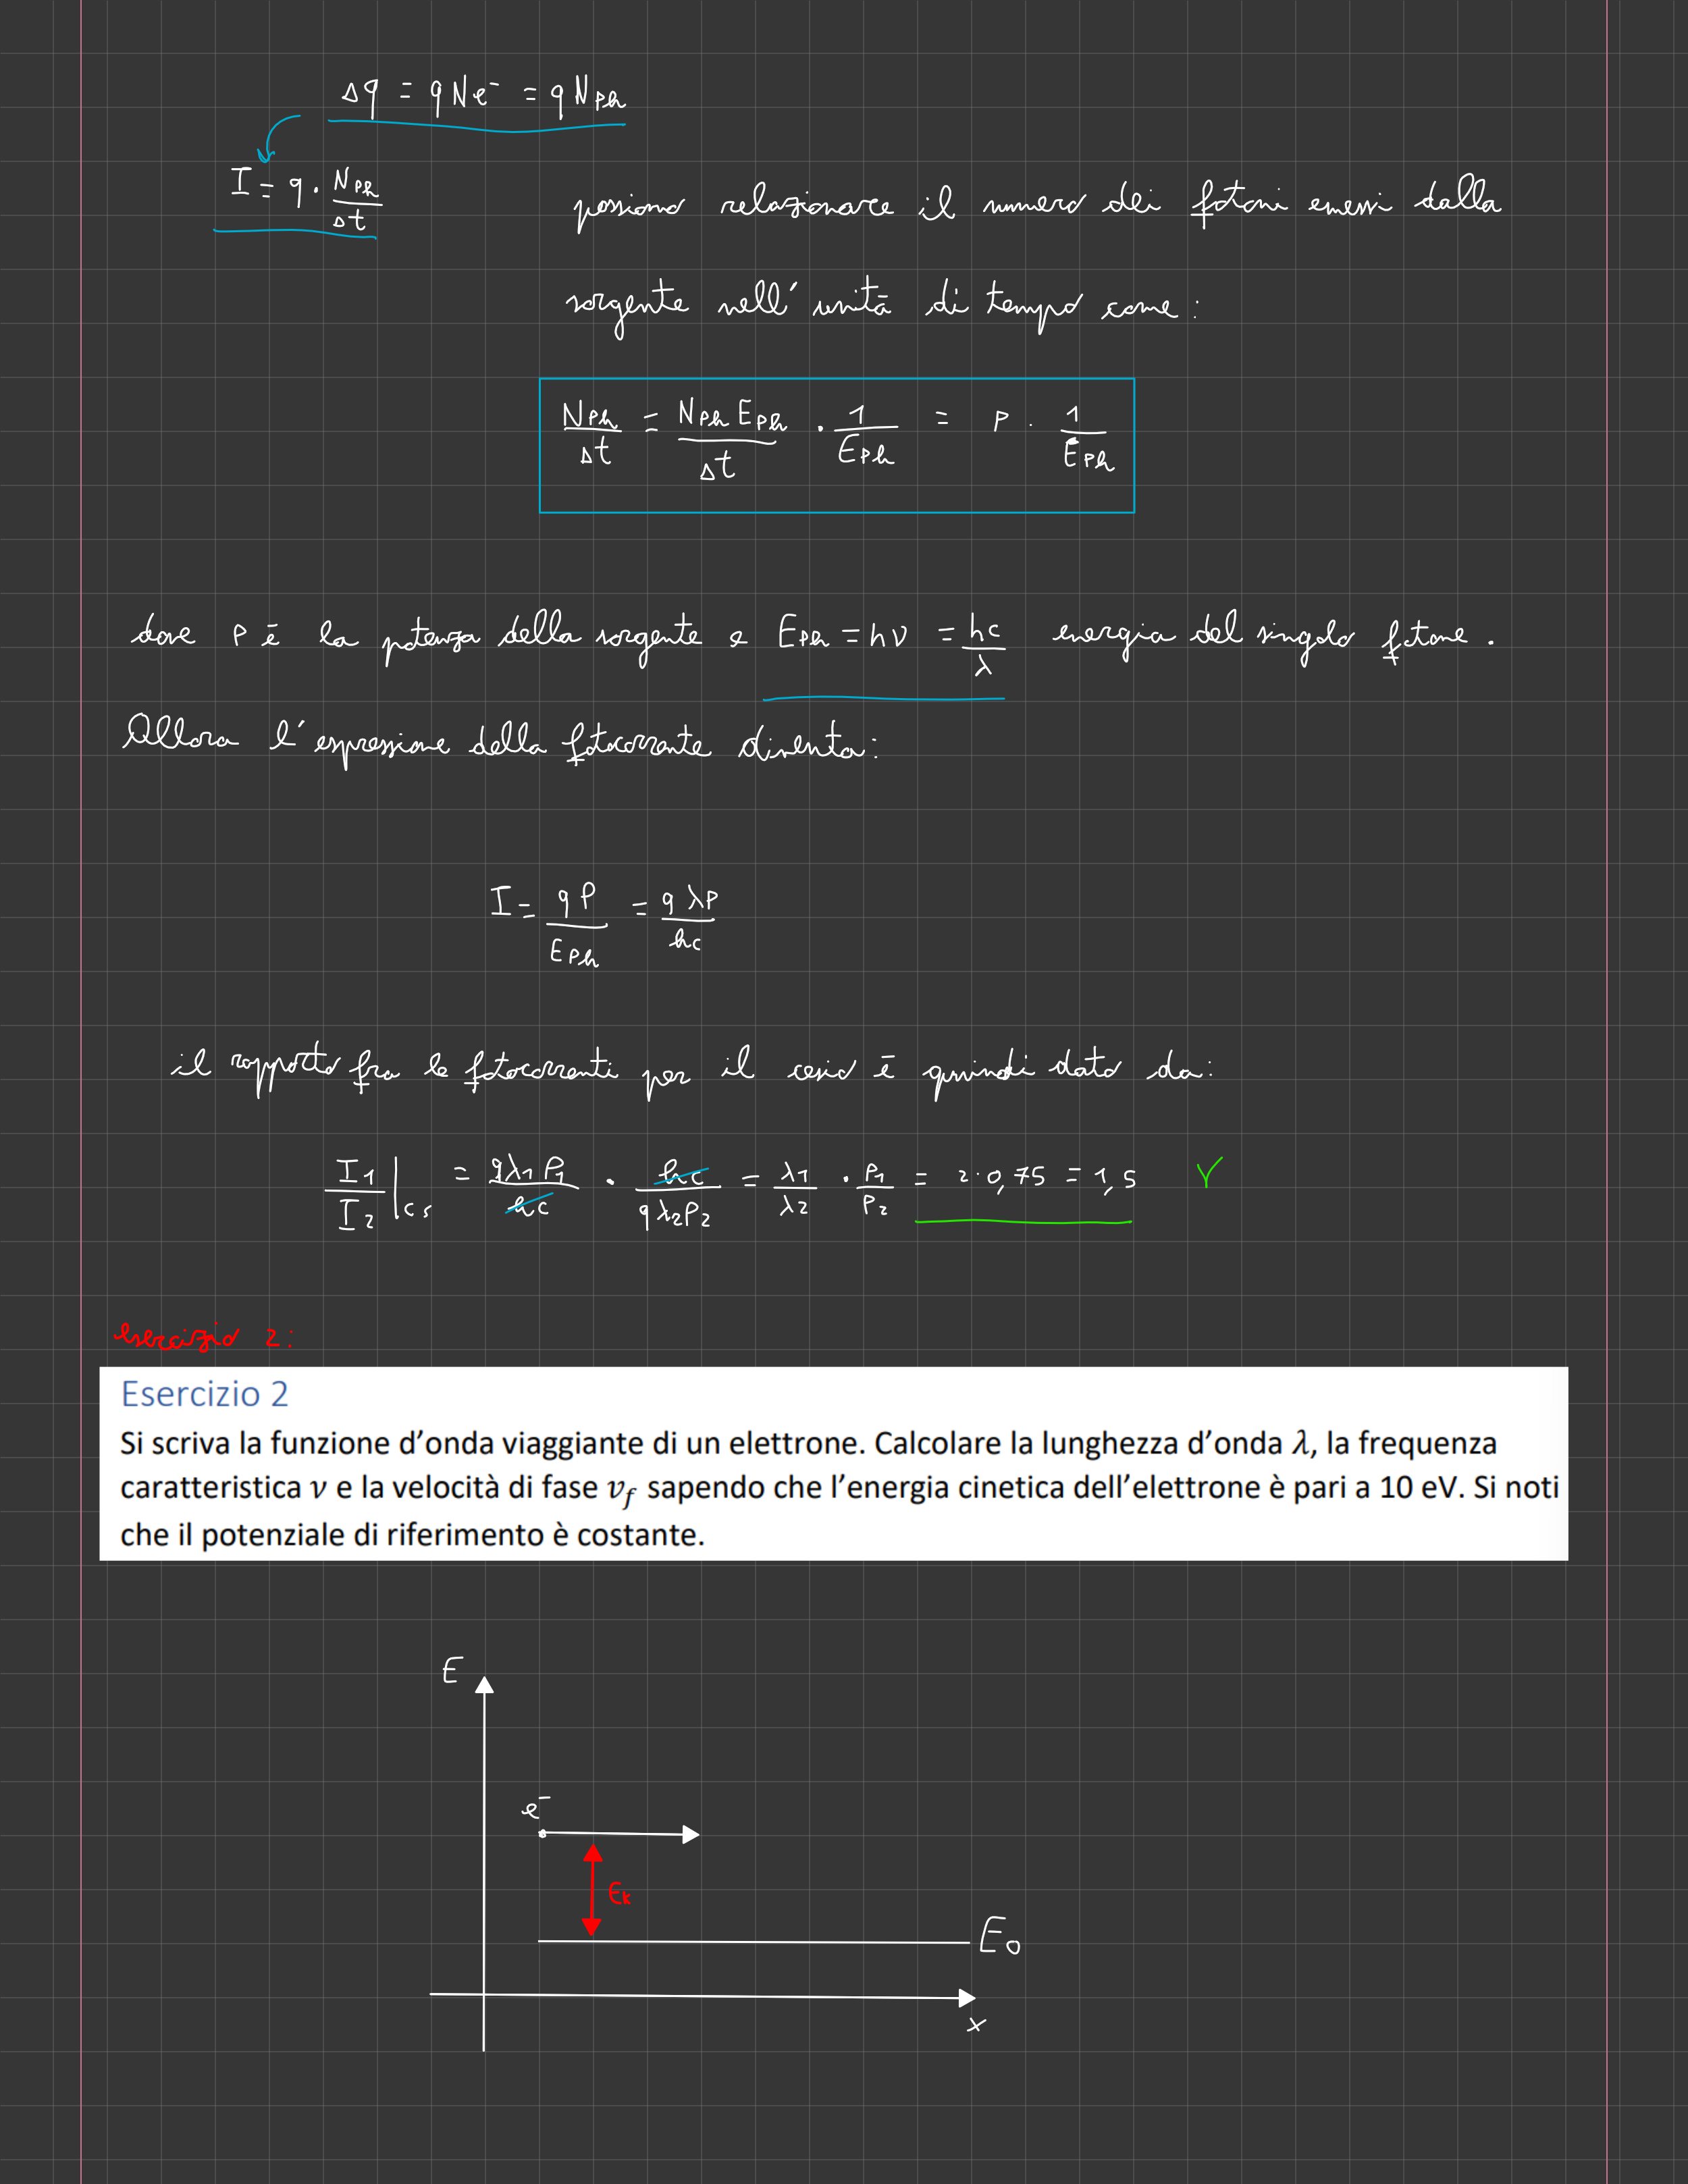 Δq = q Ne⁻ = q N_Ph
I = q · N_Ph / Δt
possiamo relazionare il numero dei fotoni emessi dalla
sorgente nell'unità di tempo come:
N_Ph / Δt = N_Ph E_Ph / Δt · 1 / E_Ph = P · 1 / E_Ph
dove P è la potenza della sorgente e E_Ph = hν = hc / λ energia del singolo fotone.
Allora l'espressione della fotocorrente diventa:
I = qP / E_Ph = qλP / hc
il rapporto fra le fotocorrenti per il cesio è quindi dato da:
I₁ / I₂ |Cs = qλ₁P₁ / hc · hc / qλ₂P₂ = λ₁ / λ₂ · P₁ / P₂ = 2·0,75 = 1,5
esercizio 2:
Esercizio 2
Si scriva la funzione d'onda viaggiante di un elettrone. Calcolare la lunghezza d'onda λ, la frequenza
caratteristica ν e la velocità di fase v_f sapendo che l'energia cinetica dell'elettrone è pari a 10 eV. Si noti
che il potenziale di riferimento è costante.
E
e⁻
E_k
E₀
x